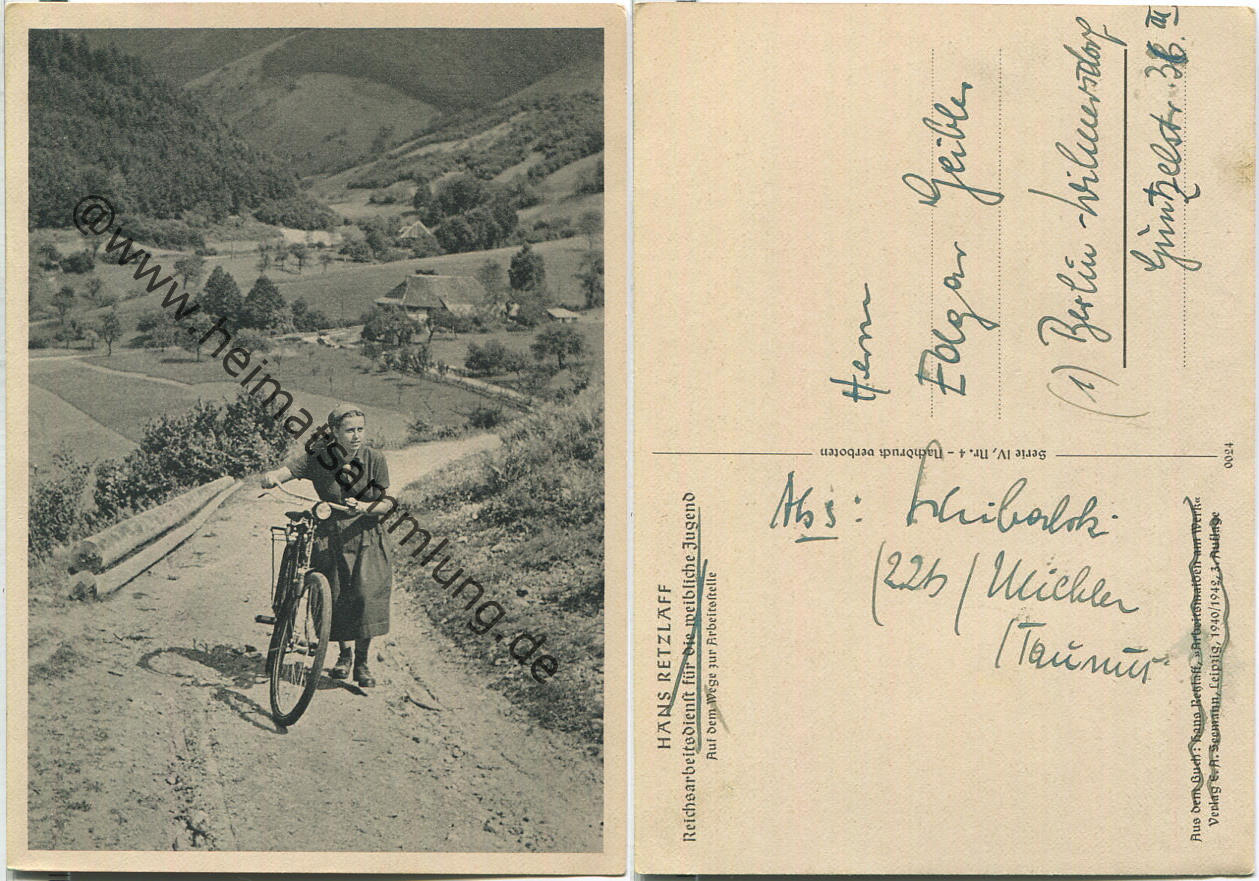 @www.heimatsammlung.de
HANS RETZLAFF
Reichsarbeitsdienst für die weibliche Jugend
Auf dem Wege zur Arbeitsstelle
Abs:
(22b) 
/Taunus
Aus dem Buch: Hans Retzlaff, »Arbeitsmaiden am Werk«
Verlag E. A. Seemann, Leipzig, 1940/1942, 3. Auflage
Serie IV, Nr. 4 – Nachdruck verboten
0024
Herrn
Edgar Geibler
(1) Berlin-Wilmersdorf
Güntzelstr. III